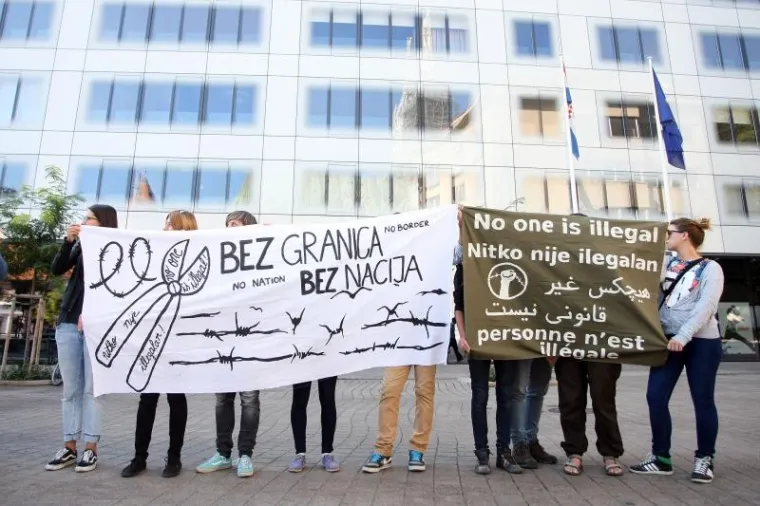 BEZ GRANICA
NO BORDER
NO NATION
BEZ NACIJA
no one
is illegal
nitko nije
ilegalan
No one is illegal
Nitko nije ilegalan
هیچکس غیر
قانونی نیست
personne n'est
illégale